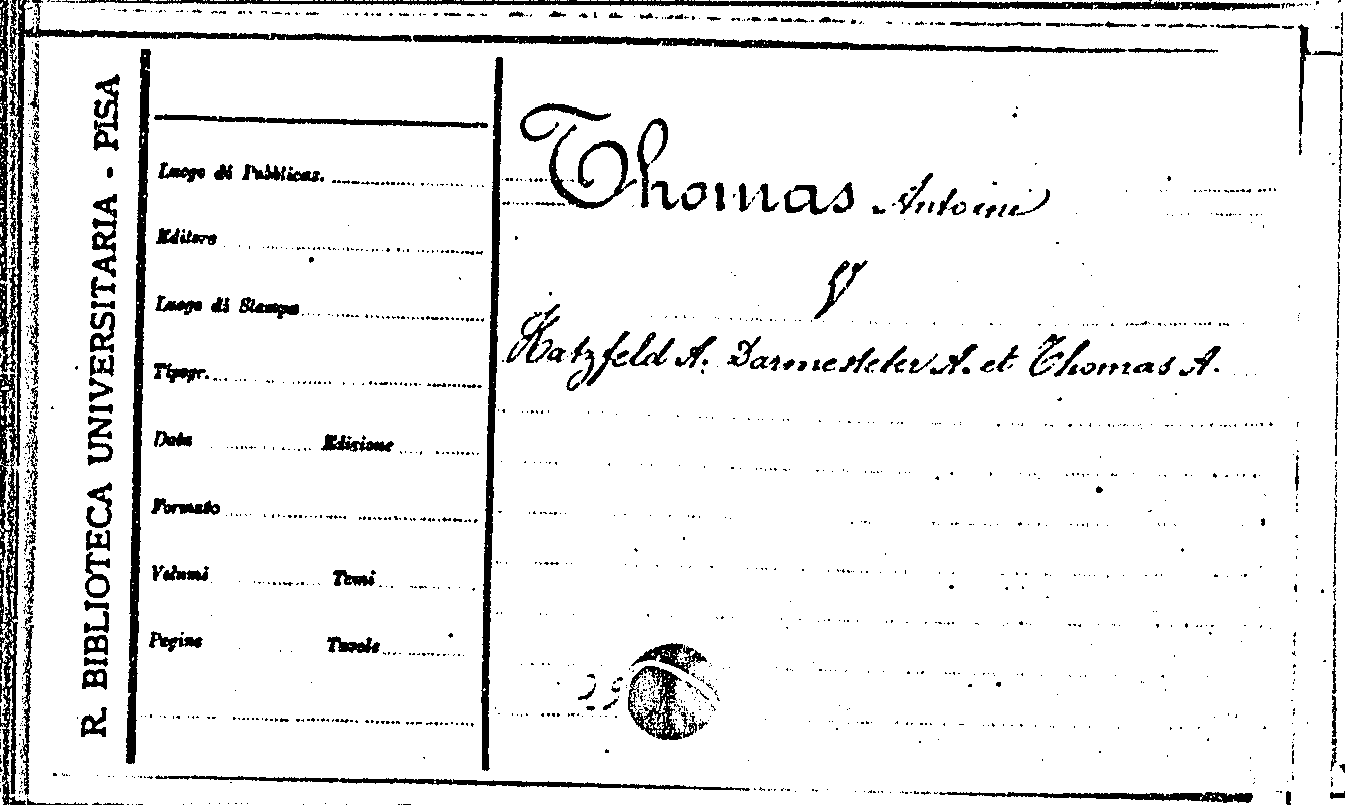 R. BIBLIOTECA UNIVERSITARIA - PISA
Luogo di Pubblicaz.
Editore
Luogo di Stampa
Tipogr.
Data Edizione
Formato
Volumi Tomi
Pagine Tavole
Thomas Antoine
V
Hatzfeld A. Darmesteter A. et Thomas A.